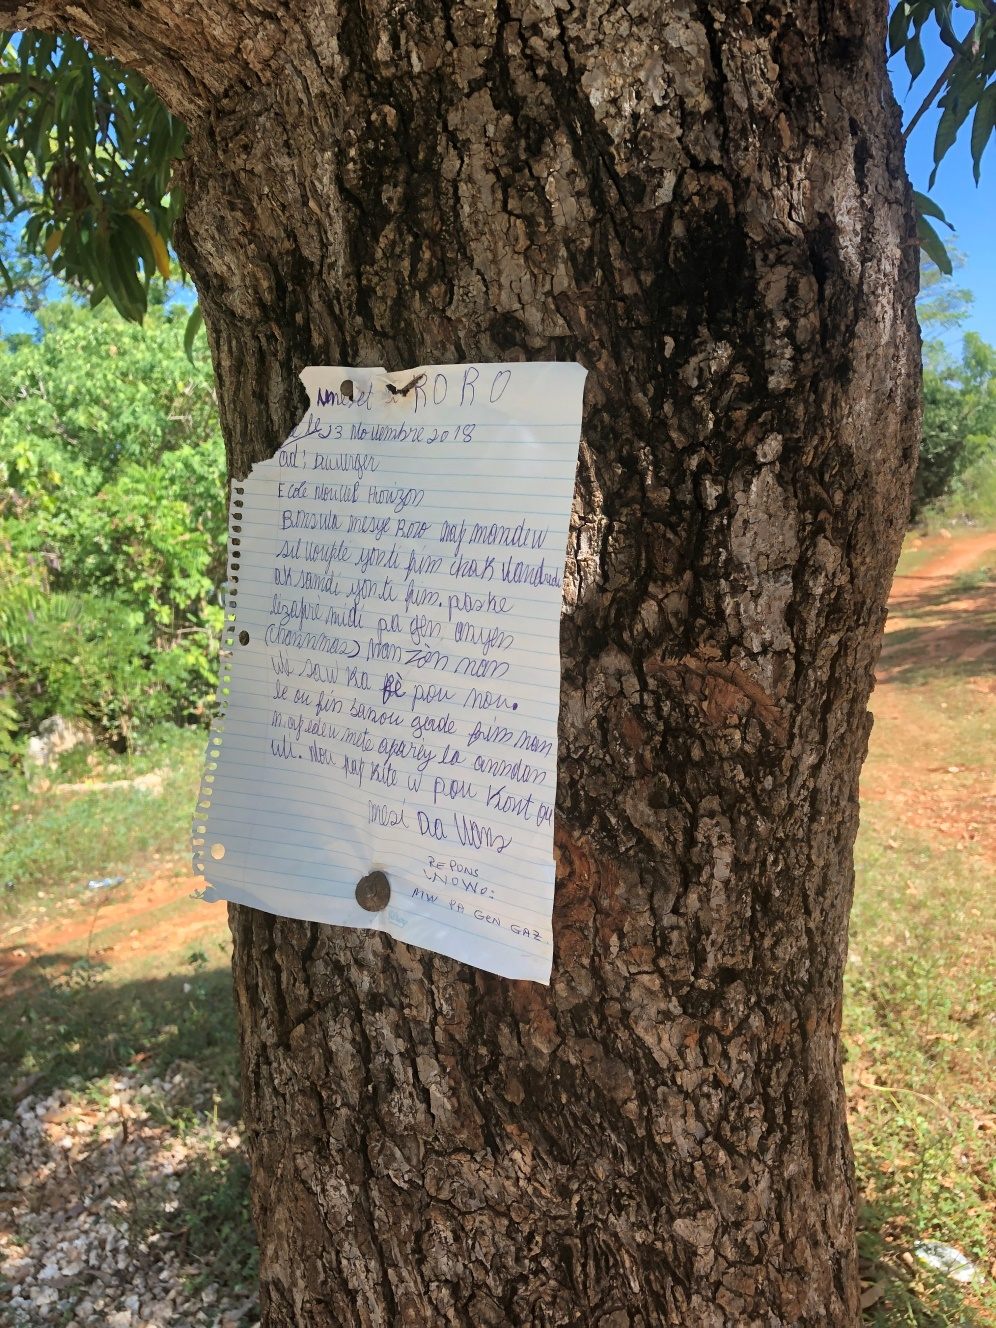 RORO
le 23 Novembre 2018
ad: Duverger
Ecole Nouvel Horizon
Bonswa mesye Roro nap mandew
sil vouple yon ti fim chak Vandredi
ak samdi yon ti fim. paske
lizapre midi pa gen anyen
(chanmas) Nan Zòn nan
wè saw ka fè pou nou.
le ou fin banou gade fim nan
n.ap edew mete aparèy la anndan
wi. Nou pap kite w pou kont ou
mesi
REPONS
WOWO:
MW PA GEN GAZ